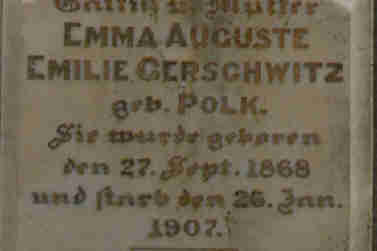 Gattin u. Mutter
EMMA AUGUSTE
EMILIE GERSCHWITZ
geb. POLK.
Sie wurde geboren
den 27. Sept. 1868
und starb den 26. Jan.
1907.